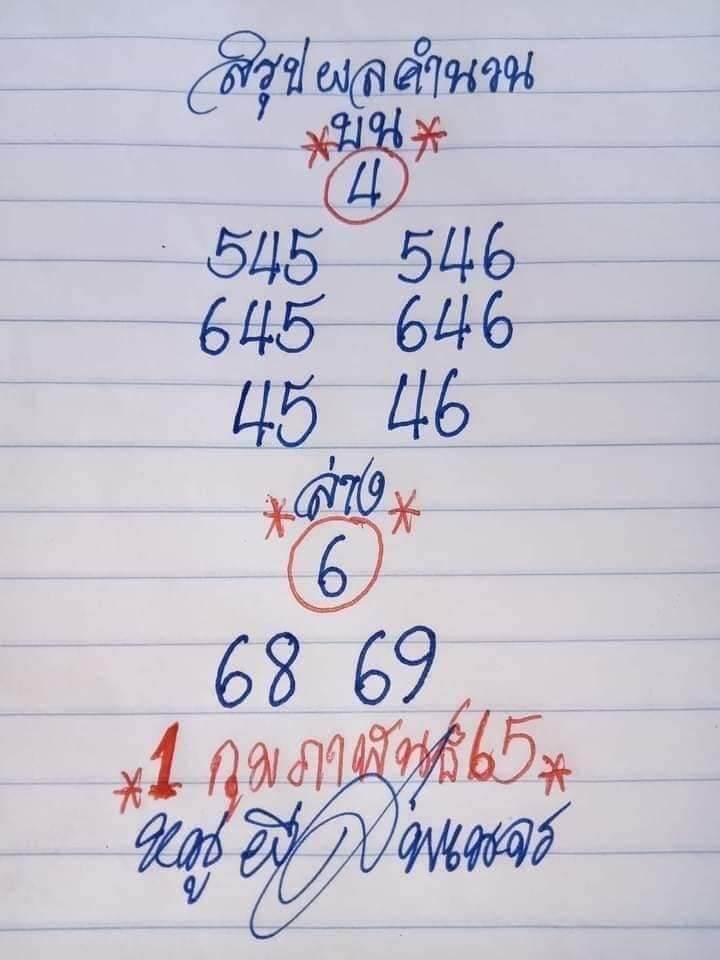 สรุปผลคำนวน
*บน*
4
545 546
645 646
45 46
*ล่าง*
6
68 69
*1 กุมภาพันธ์65*
หมู ผี